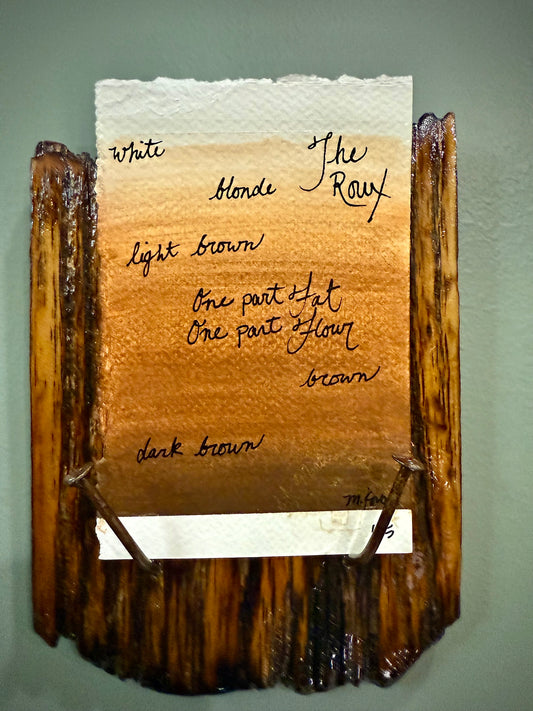 white
The
Roux
blonde
light brown
One part Fat
One part Flour
brown
dark brown
M.